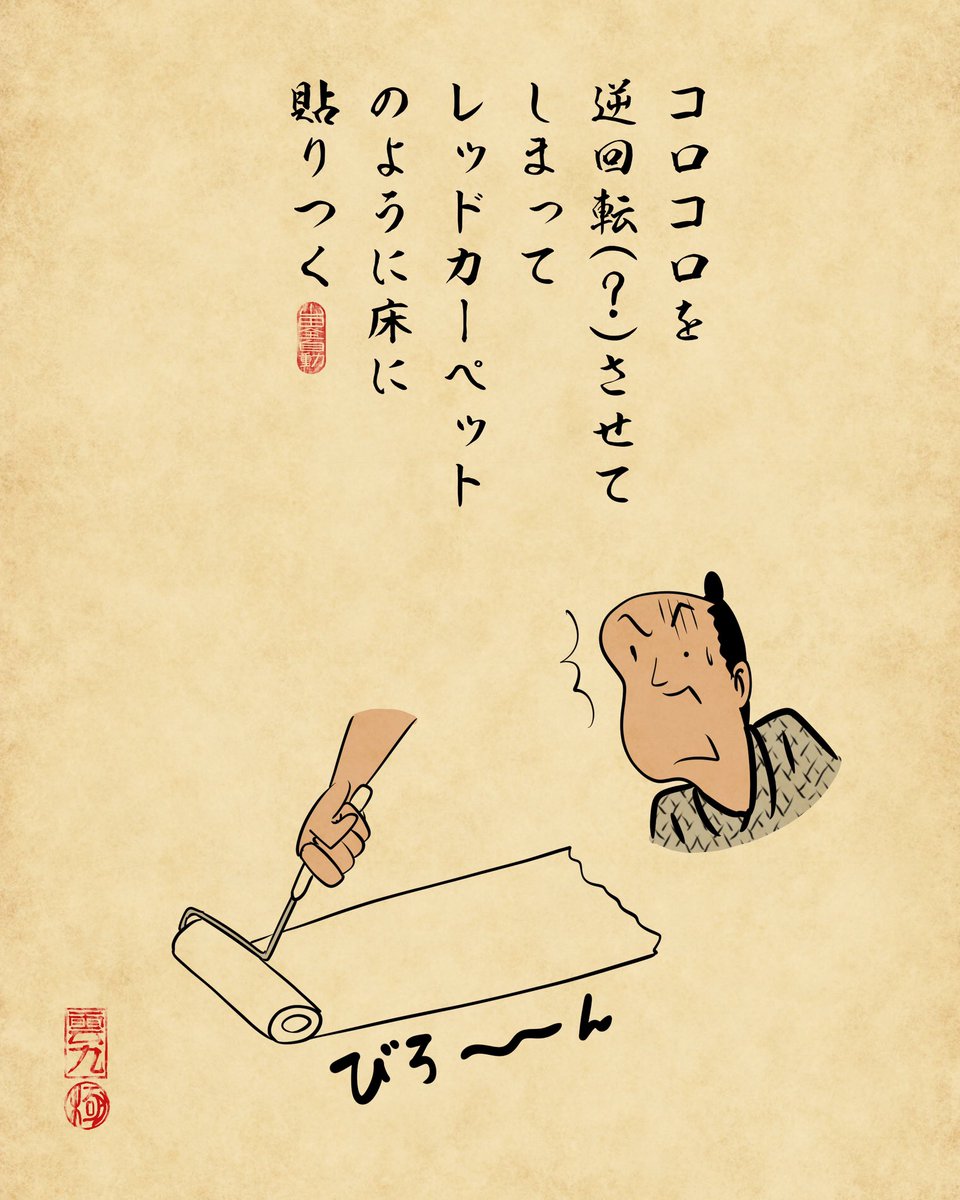 コロコロを
逆回転(?)させて
しまって
レッドカーペット
のように床に
貼りつく
びろ〜〜ん